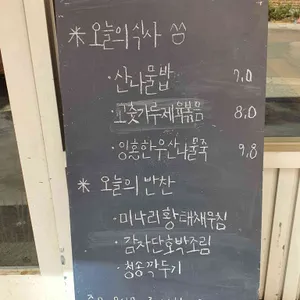 ※ 오늘의 식사
· 산나물밥 7,0
· 고춧가루제육볶음 8,0
· 영혼한우산나물죽 9,8
※ 오늘의 반찬
· 미나리황태채무침
· 감자단호박조림
· 청송깍두기